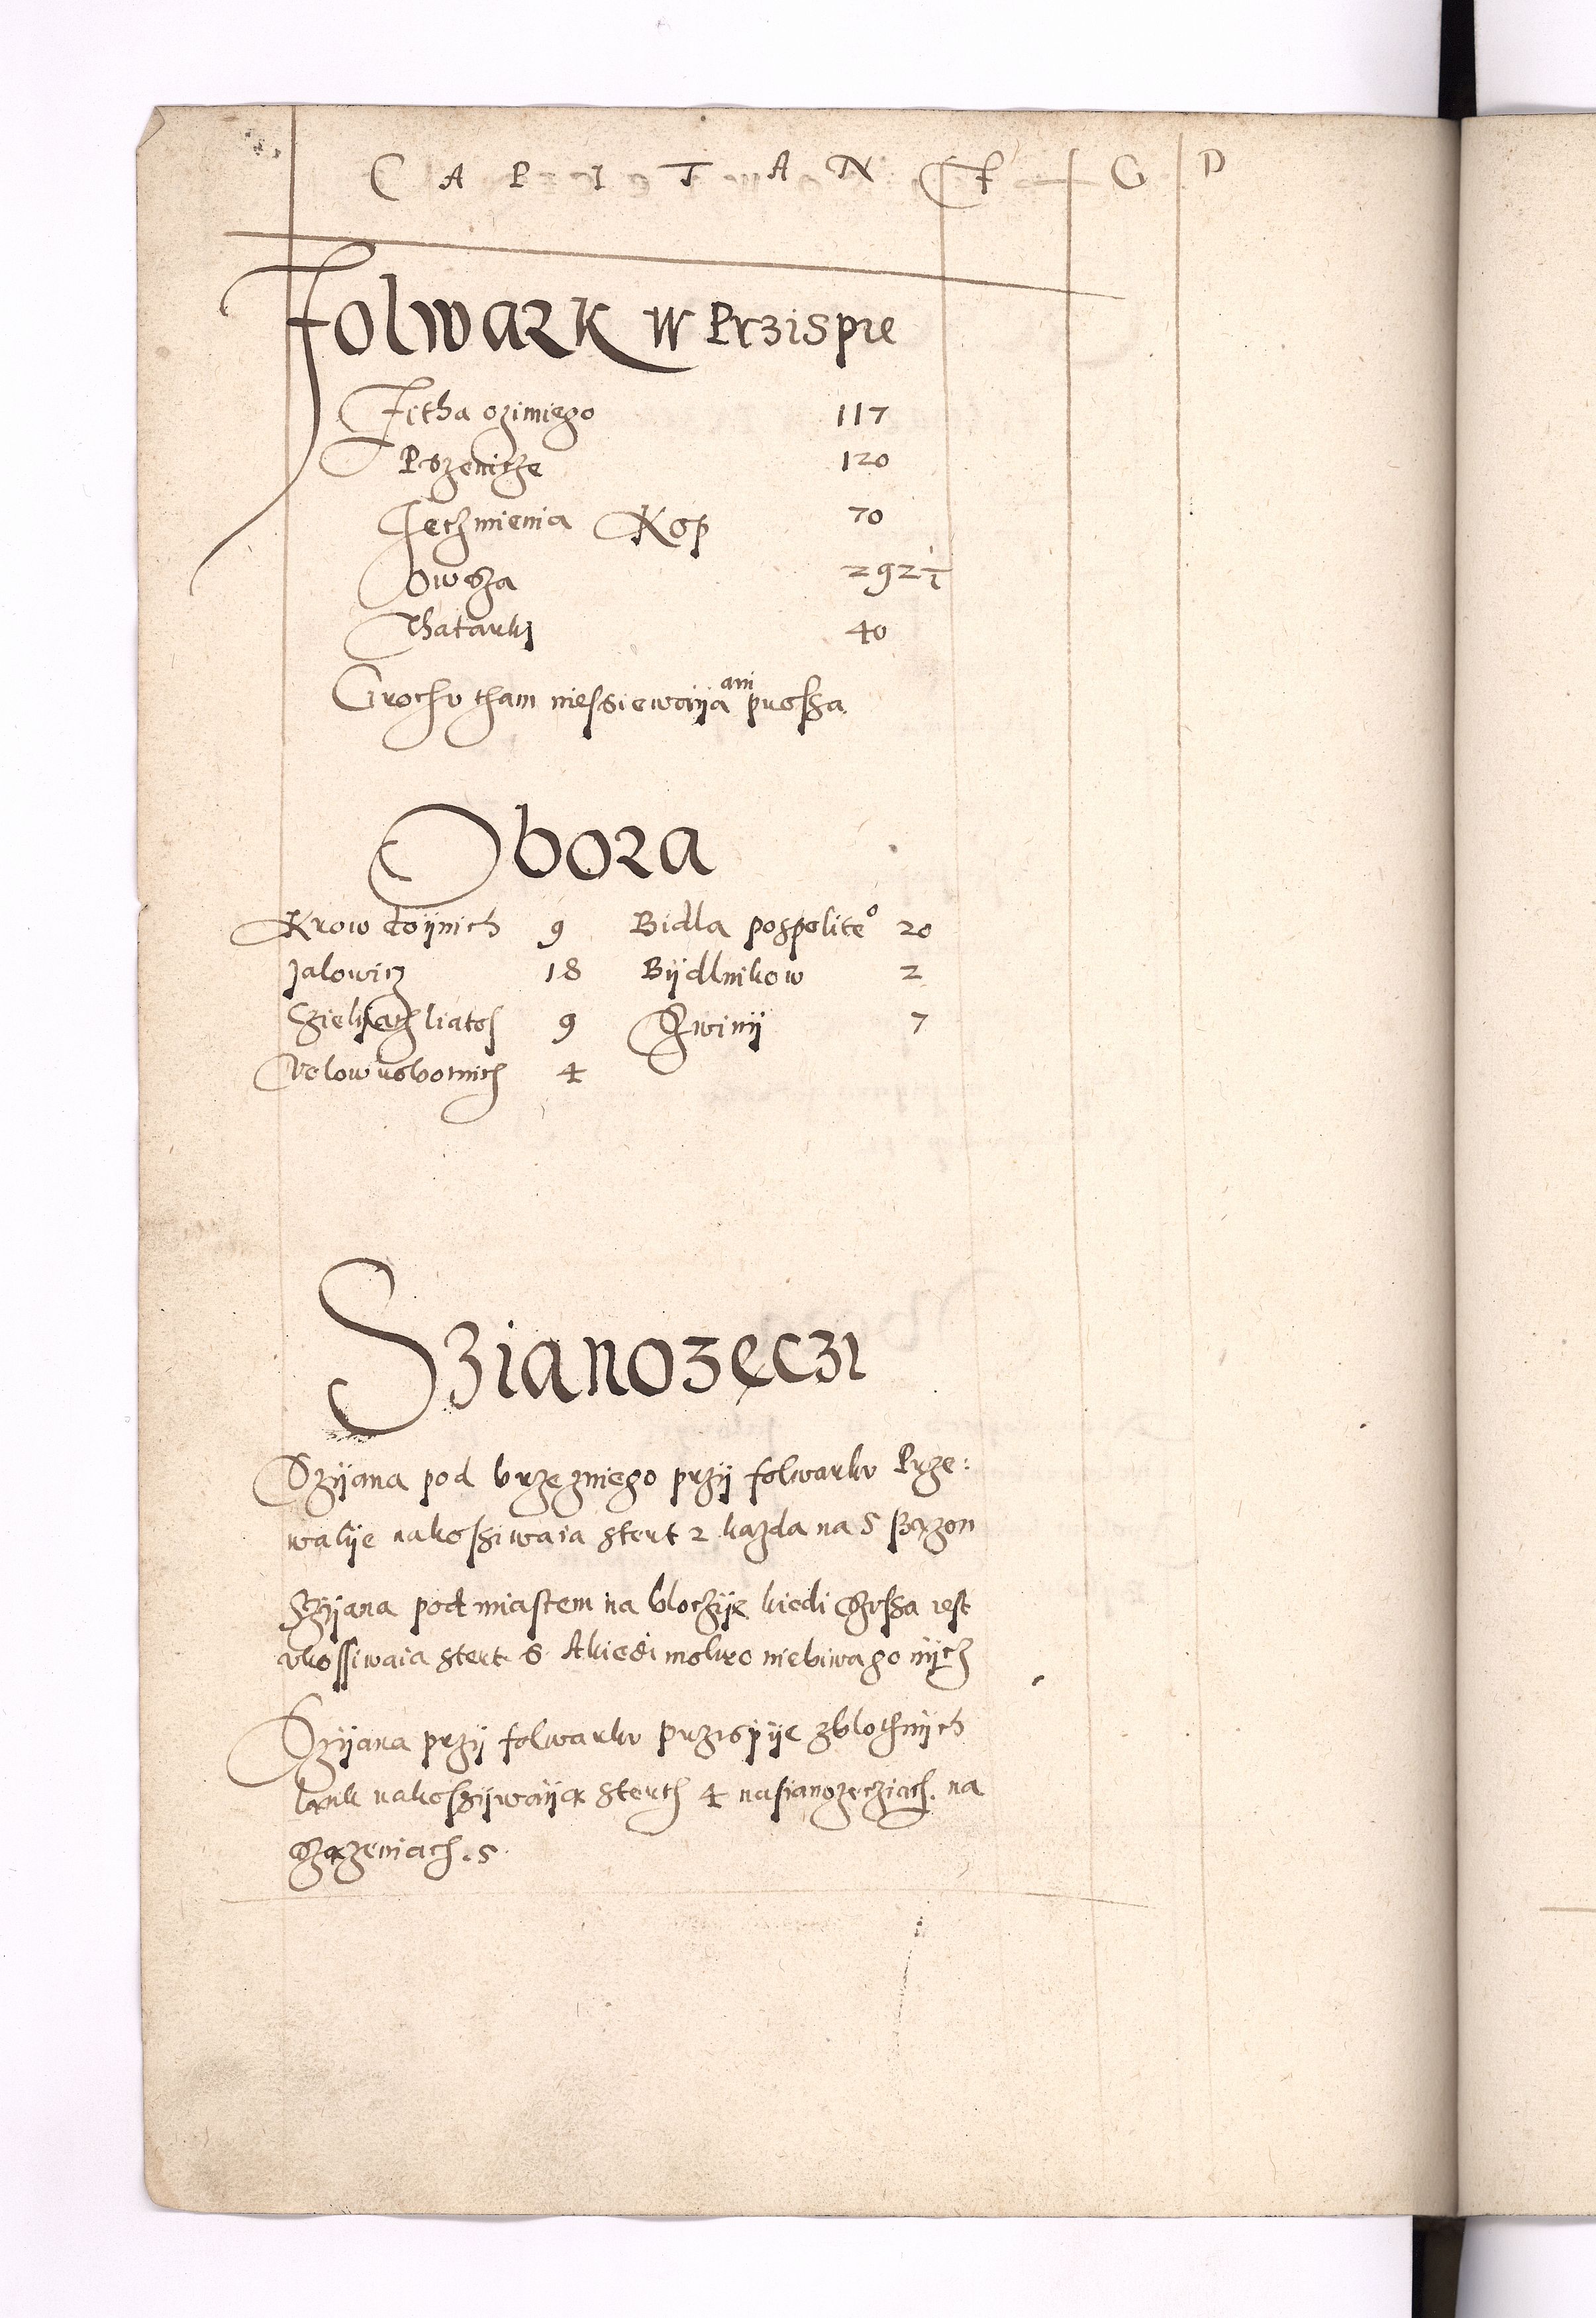 C A P I T A N F G D
Folwark W Przispie
Zitha ozimiego 117
Pszenicze 120
Jęczmienia Kop 70
Owsza 292 ½
Thatarki 40
Grochv tham niessiewaija ani prossza
Obora
Krow doijnich 9 Bidla pospolite° 20
Jalowicz 18 Bijdlnikow 2
Czieliąch liatos 9 Szwinij 7
Wolow robotnich 4
Szianozęczi
Szijana pod brzezniego przij folwarkv Prze:
walije nakossiwaia stert 2 kazda na 5 sązon
Szijana pod miastem na blocije kiedi szvsza iest
vkossiwaia stert 8 Akiedi mokro niebiwa go nijcz
Szijana przij folwarkv przispije zblothnijch
ląnk nakoszijwaiją sterth 4 nasianozęcziach. na
szązeniach. 5.